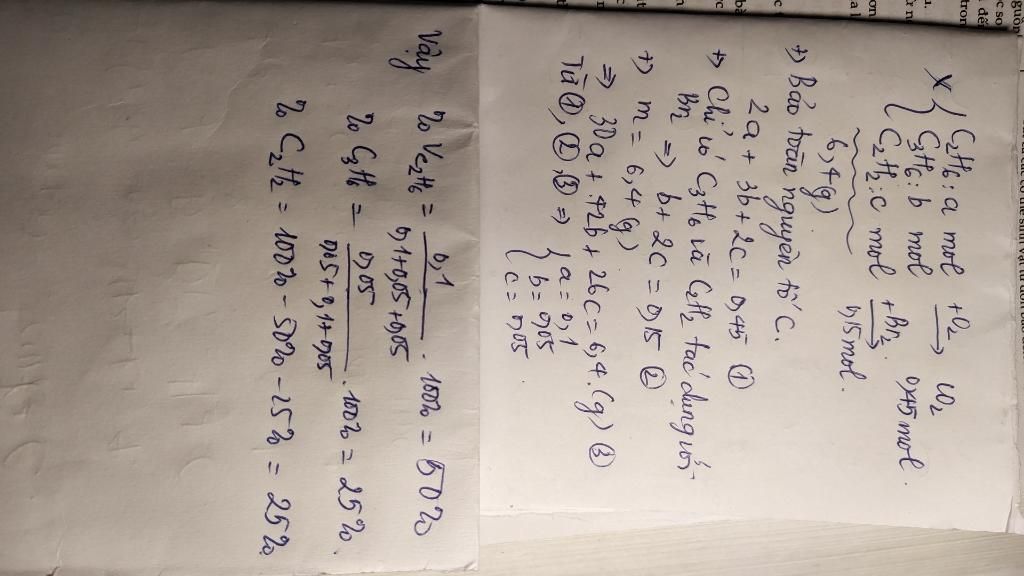 X { C₂H₆: a mol +O₂ → CO₂
C₃H₆: b mol 0,45 mol.
C₂H₂: c mol +Br₂ →
6,4g) 0,15 mol.
+) Bảo toàn nguyên tố C.
2a + 3b + 2c = 0,45 ①
+) Chỉ có C₃H₆ và C₂H₂ tác dụng với
Br₂ ⇒ b + 2c = 0,15 ②
+) m = 6,4 (g)
⇒ 30a + 42b + 26c = 6,4. (g) ③
Từ ①, ②, ③ ⇒ { a = 0,1
b = 0,05
c = 0,05
Vậy % V C₂H₆ = 0,1 / 0,1+0,05+0,05 . 100% = 50%
% C₃H₆ = 0,05 / 0,05+0,1+0,05 . 100% = 25%.
% C₂H₂ = 100% - 50% - 25% = 25%